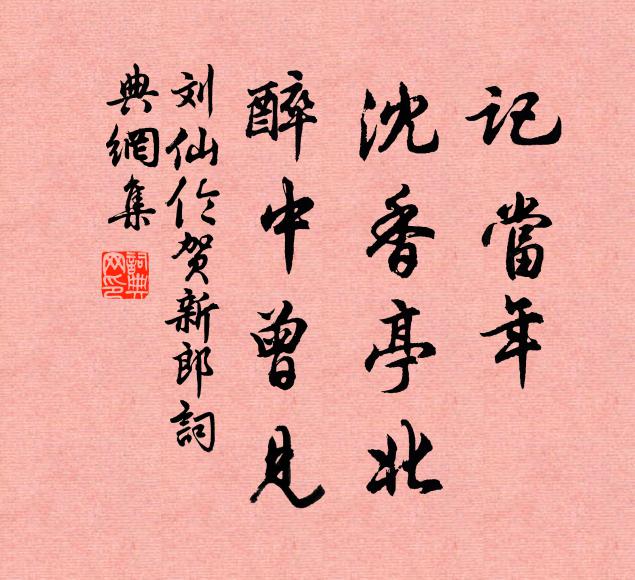 记當年
沈香亭北
醉中曾见
刘仙伦贺新郎詞
典網集
詞典
网印